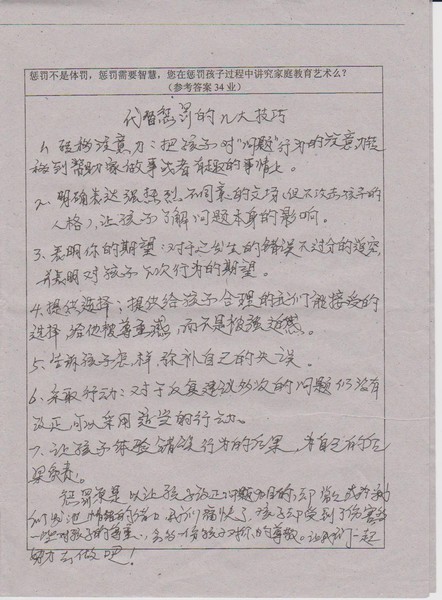 惩罚不是体罚，惩罚需要智慧，您在惩罚孩子过程中讲究家庭教育艺术么？
（参考答案 34 业）
代替惩罚的几大技巧
1、转移注意力：把孩子对“问题”行为的注意力转
移到帮助家做事或者有趣的事情上。
2、明确表达强烈不同意的立场（但不攻击孩子的
人格），让孩子了解问题本身的影响。
3、表明你的期望：对于已发生的错误不过分的追究，
并表明对孩子下次行为的期望。
4、提供选择：提供给孩子合理的我们能接受的
选择，给他被尊重感，而不是被强迫感。
5、告诉孩子怎样弥补自己的失误。
6、采取行动：对于反复建议多次的问题仍没有
改正，可以采用适当的行动。
7、让孩子体验错误行为的后果，为自己的后
果负责。
惩罚原是以让孩子改正问题为目的，却
们发泄情绪的 我们痛快了，孩子却受到了伤害
一些对孩子的尊重，会多一份孩子对你的尊敬。让我们一起
努力去做吧！